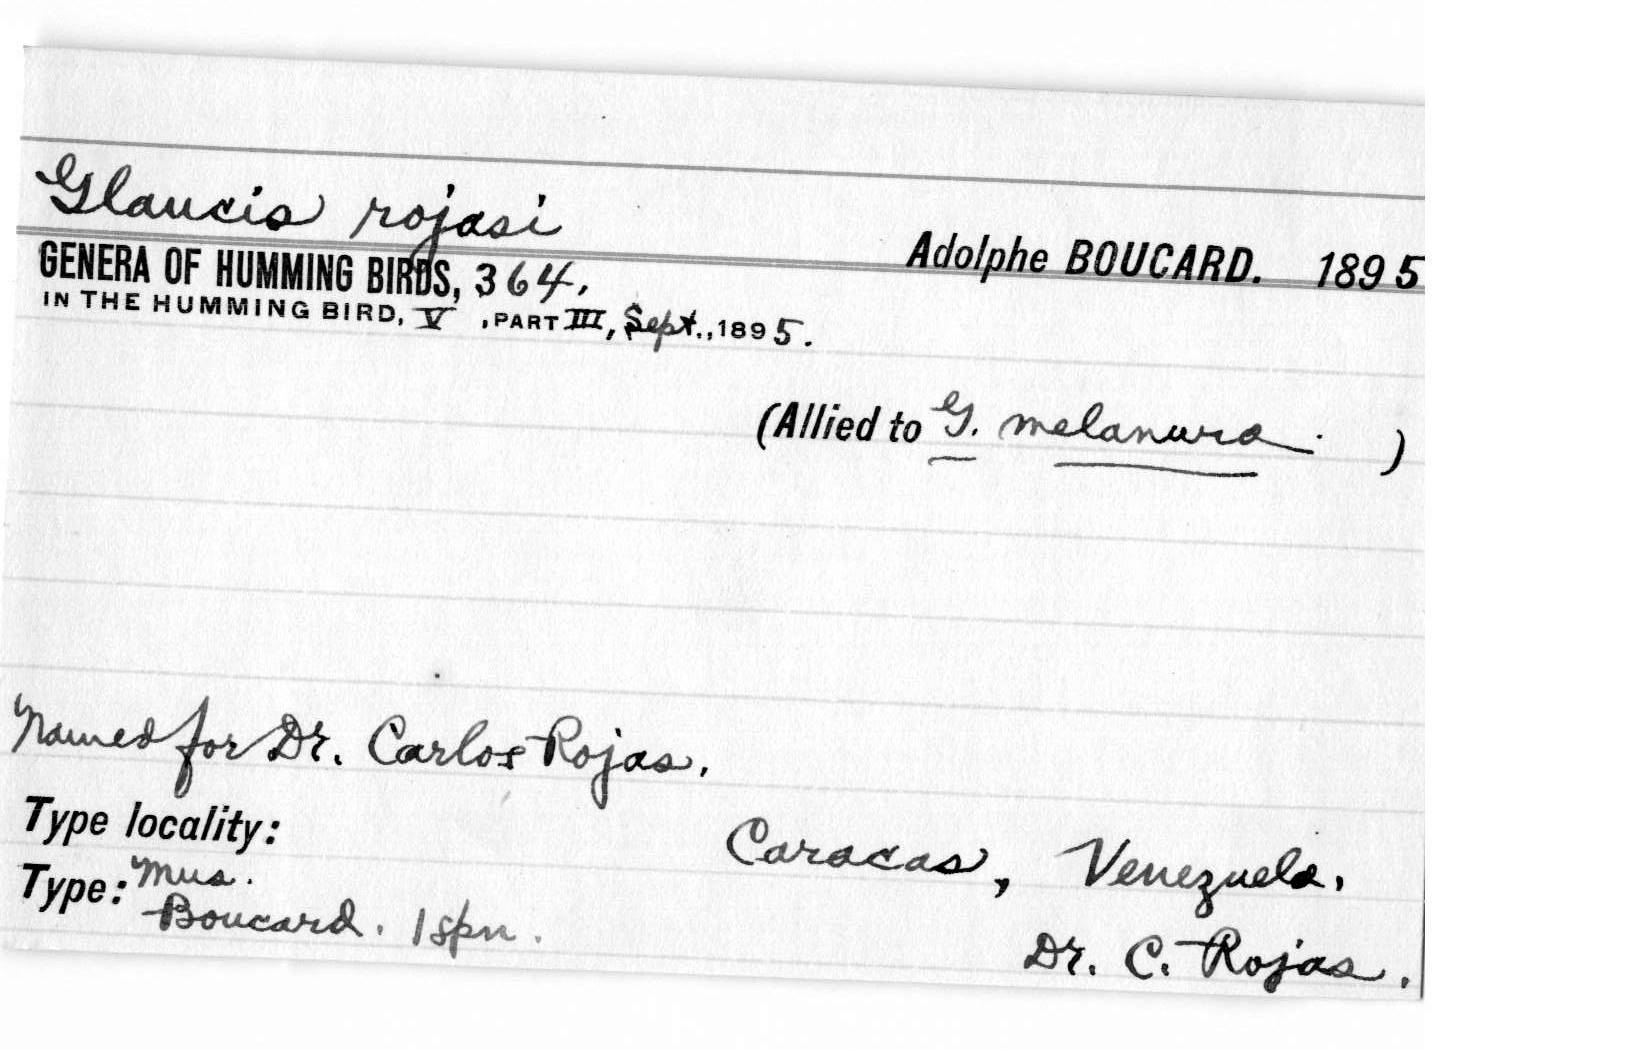 Glaucis rojasi
Adolphe BOUCARD. 1895
GENERA OF HUMMING BIRDS, 364,
IN THE HUMMING BIRD, V , PART III, Sept., 1895.
(Allied to G. melanura. )
Named for Dr. Carlos Rojas.
Type locality:
Caracas, Venezuela.
Type: Mus. Boucard. 1 spn.
Dr. C. Rojas.